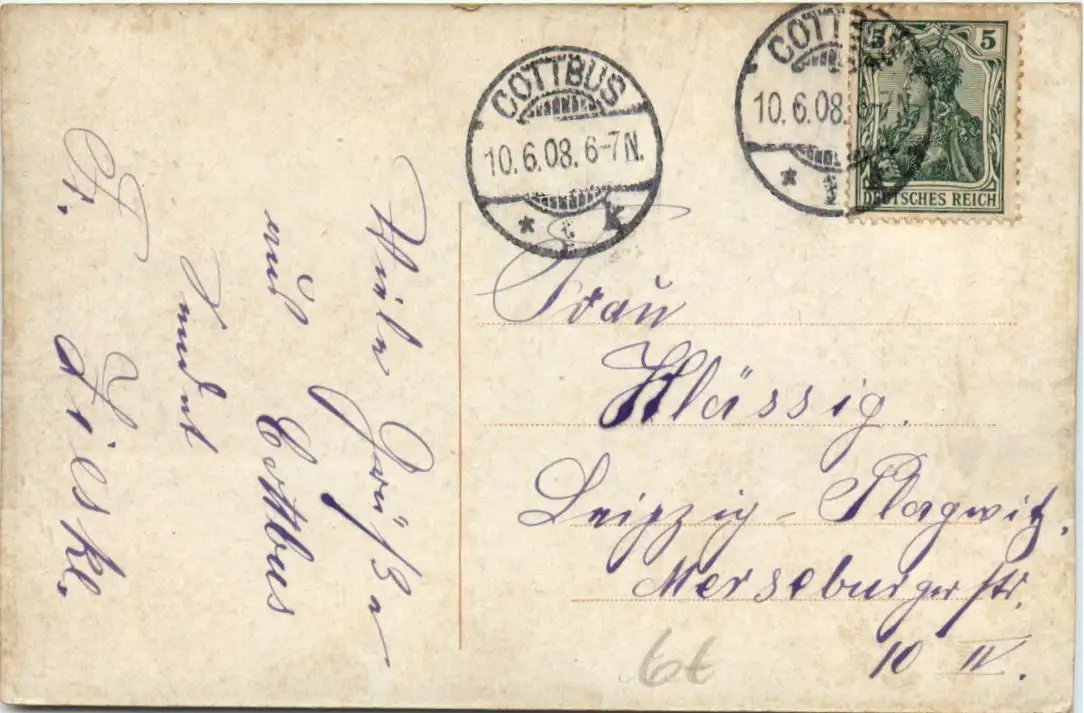 COTTBUS
10.6.08. 6-7N.
* k
COTTBUS
10.6.08. 6-7N
*
5 5
DEUTSCHES REICH
Frau
Klässig.
Leipzig-Plagwitz.
Merseburgerstr.
10 IV.
Viele Grüße
aus Cottbus
sendet
Fr. Lieske.
6t